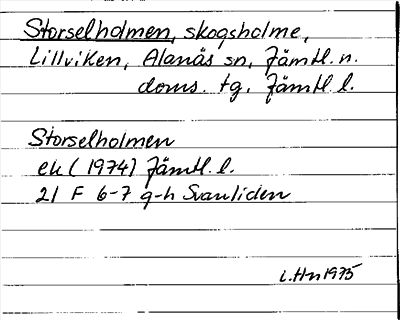 Storselholmen, skogsholme,
Lillviken, Alanäs sn, Jämtl. n.
doms. tg, Jämtl. l.
Storselholmen
ek (1974) Jämtl. l.
21 F 6-7 g-h Svanliden
L.Hn 1975